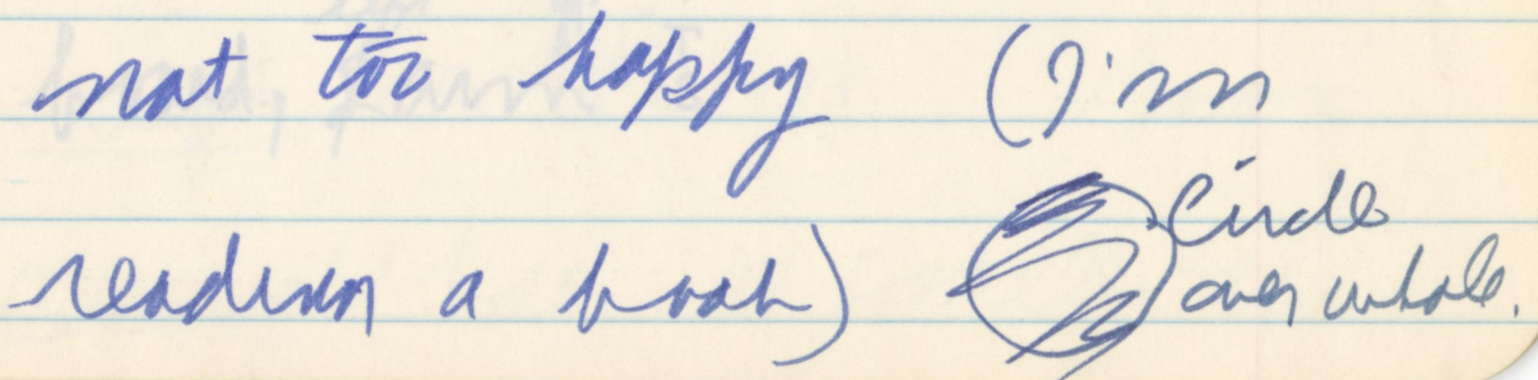 not too happy (I'm
reading a book) circle
over whole.